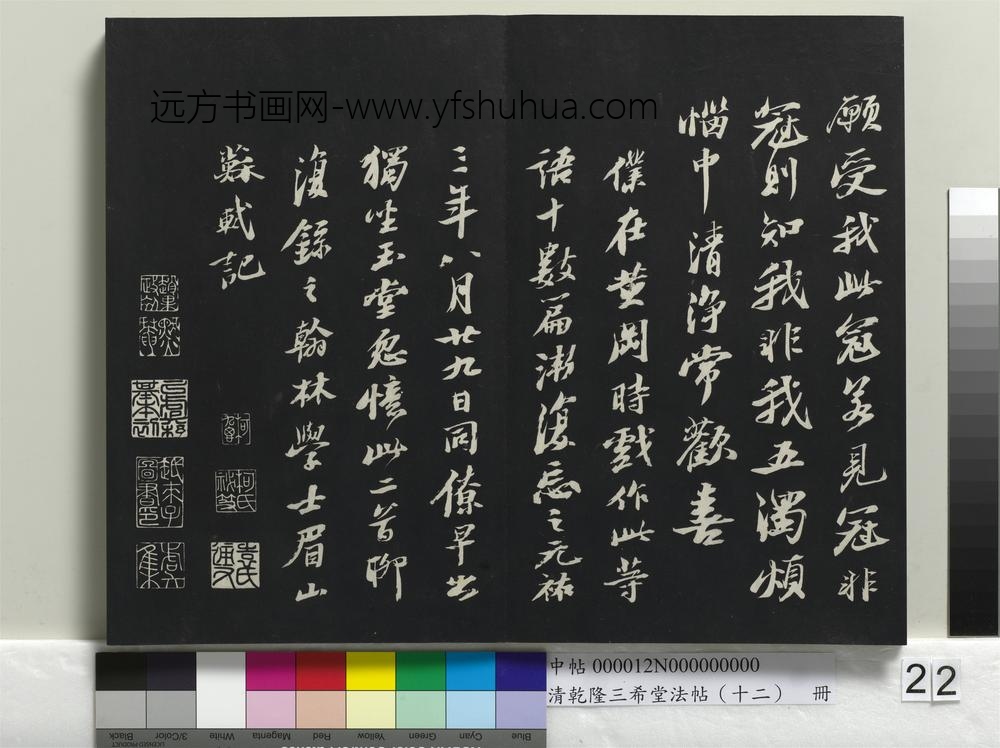 願受我此冠若見冠非
冠則知我非我五濁煩
惱中清淨常歡喜
僕在黃岡時戲作此等
語十數篇漸復忘之元祐
三年八月廿九日同僚早出
獨坐玉堂忽憶此二首聊
復錄之翰林學士眉山
蘇軾記
远方书画网-www.yfshuhua.com
中帖 000012N000000000
清乾隆三希堂法帖（十二） 冊
22
Blue
Cyan
Green
Yellow
Red
Magenta
White
3/Color
Black